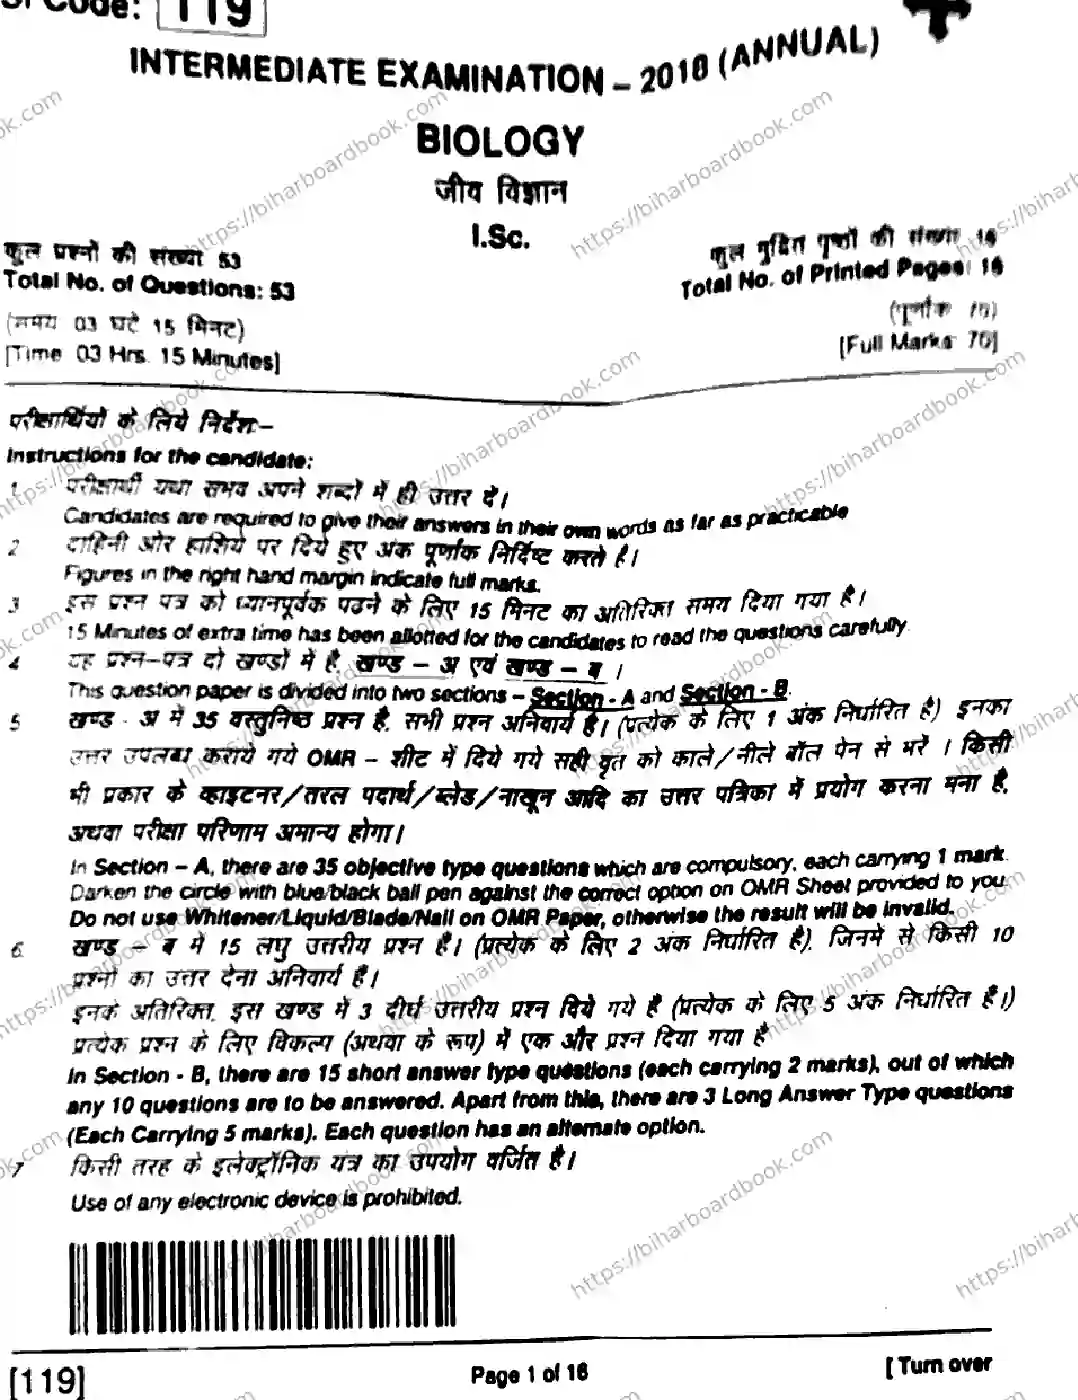 Code: 119
INTERMEDIATE EXAMINATION – 2018 (ANNUAL)
BIOLOGY
जीव विज्ञान
I.Sc.
कुल प्रश्नों की संख्या 53
Total No. of Questions: 53
(समय 03 घंटे 15 मिनट)
[Time 03 Hrs. 15 Minutes]
कुल मुद्रित पृष्ठों की संख्या 16
Total No. of Printed Pages: 16
(पूर्णांक 70)
[Full Marks 70]
परीक्षार्थियों के लिये निर्देश:–
Instructions for the candidate:
1 परीक्षार्थी यथा संभव अपने शब्दों में ही उत्तर दें।
Candidates are required to give their answers in their own words as far as practicable
2 दाहिनी ओर हाशिये पर दिये हुए अंक पूर्णांक निर्दिष्ट करते है।
Figures in the right hand margin indicate full marks.
3 इस प्रश्न पत्र को ध्यानपूर्वक पढने के लिए 15 मिनट का अतिरिक्त समय दिया गया है।
15 Minutes of extra time has been allotted for the candidates to read the questions carefully
4 यह प्रश्न–पत्र दो खण्डों में है, खण्ड – अ एवं खण्ड – ब ।
This question paper is divided into two sections – Section - A and Section - B.
5 खण्ड - अ में 35 वस्तुनिष्ठ प्रश्न है, सभी प्रश्न अनिवार्य है। (प्रत्येक के लिए 1 अंक निर्धारित है) इनका
उत्तर उपलब्ध कराये गये OMR – शीट में दिये गये सही वृत को काले/नीले बॉल पेन से भरें । किसी
भी प्रकार के व्हाइटनर/तरल पदार्थ/ब्लेड/नाखून आदि का उत्तर पत्रिका में प्रयोग करना मना है,
अथवा परीक्षा परिणाम अमान्य होगा।
In Section – A, there are 35 objective type questions which are compulsory, each carrying 1 mark.
Darken the circle with blue/black ball pen against the correct option on OMR Sheet provided to you
Do not use Whitener/Liquid/Blade/Nail on OMR Paper, otherwise the result will be invalid.
6. खण्ड – ब में 15 लघु उत्तरीय प्रश्न है। (प्रत्येक के लिए 2 अंक निर्धारित है), जिनमें से किसी 10
प्रश्नों का उत्तर देना अनिवार्य है।
इनके अतिरिक्त, इस खण्ड में 3 दीर्घ उत्तरीय प्रश्न दिये गये है (प्रत्येक के लिए 5 अंक निर्धारित है।)
प्रत्येक प्रश्न के लिए विकल्प (अथवा के रूप) में एक और प्रश्न दिया गया है
In Section - B, there are 15 short answer type questions (each carrying 2 marks), out of which
any 10 questions are to be answered. Apart from this, there are 3 Long Answer Type questions
(Each Carrying 5 marks). Each question has an alternate option.
7 किसी तरह के इलेक्ट्रॉनिक यंत्र का उपयोग वर्जित है।
Use of any electronic device is prohibited.
[119]
Page 1 of 16
[ Turn over
https://biharboardbook.com